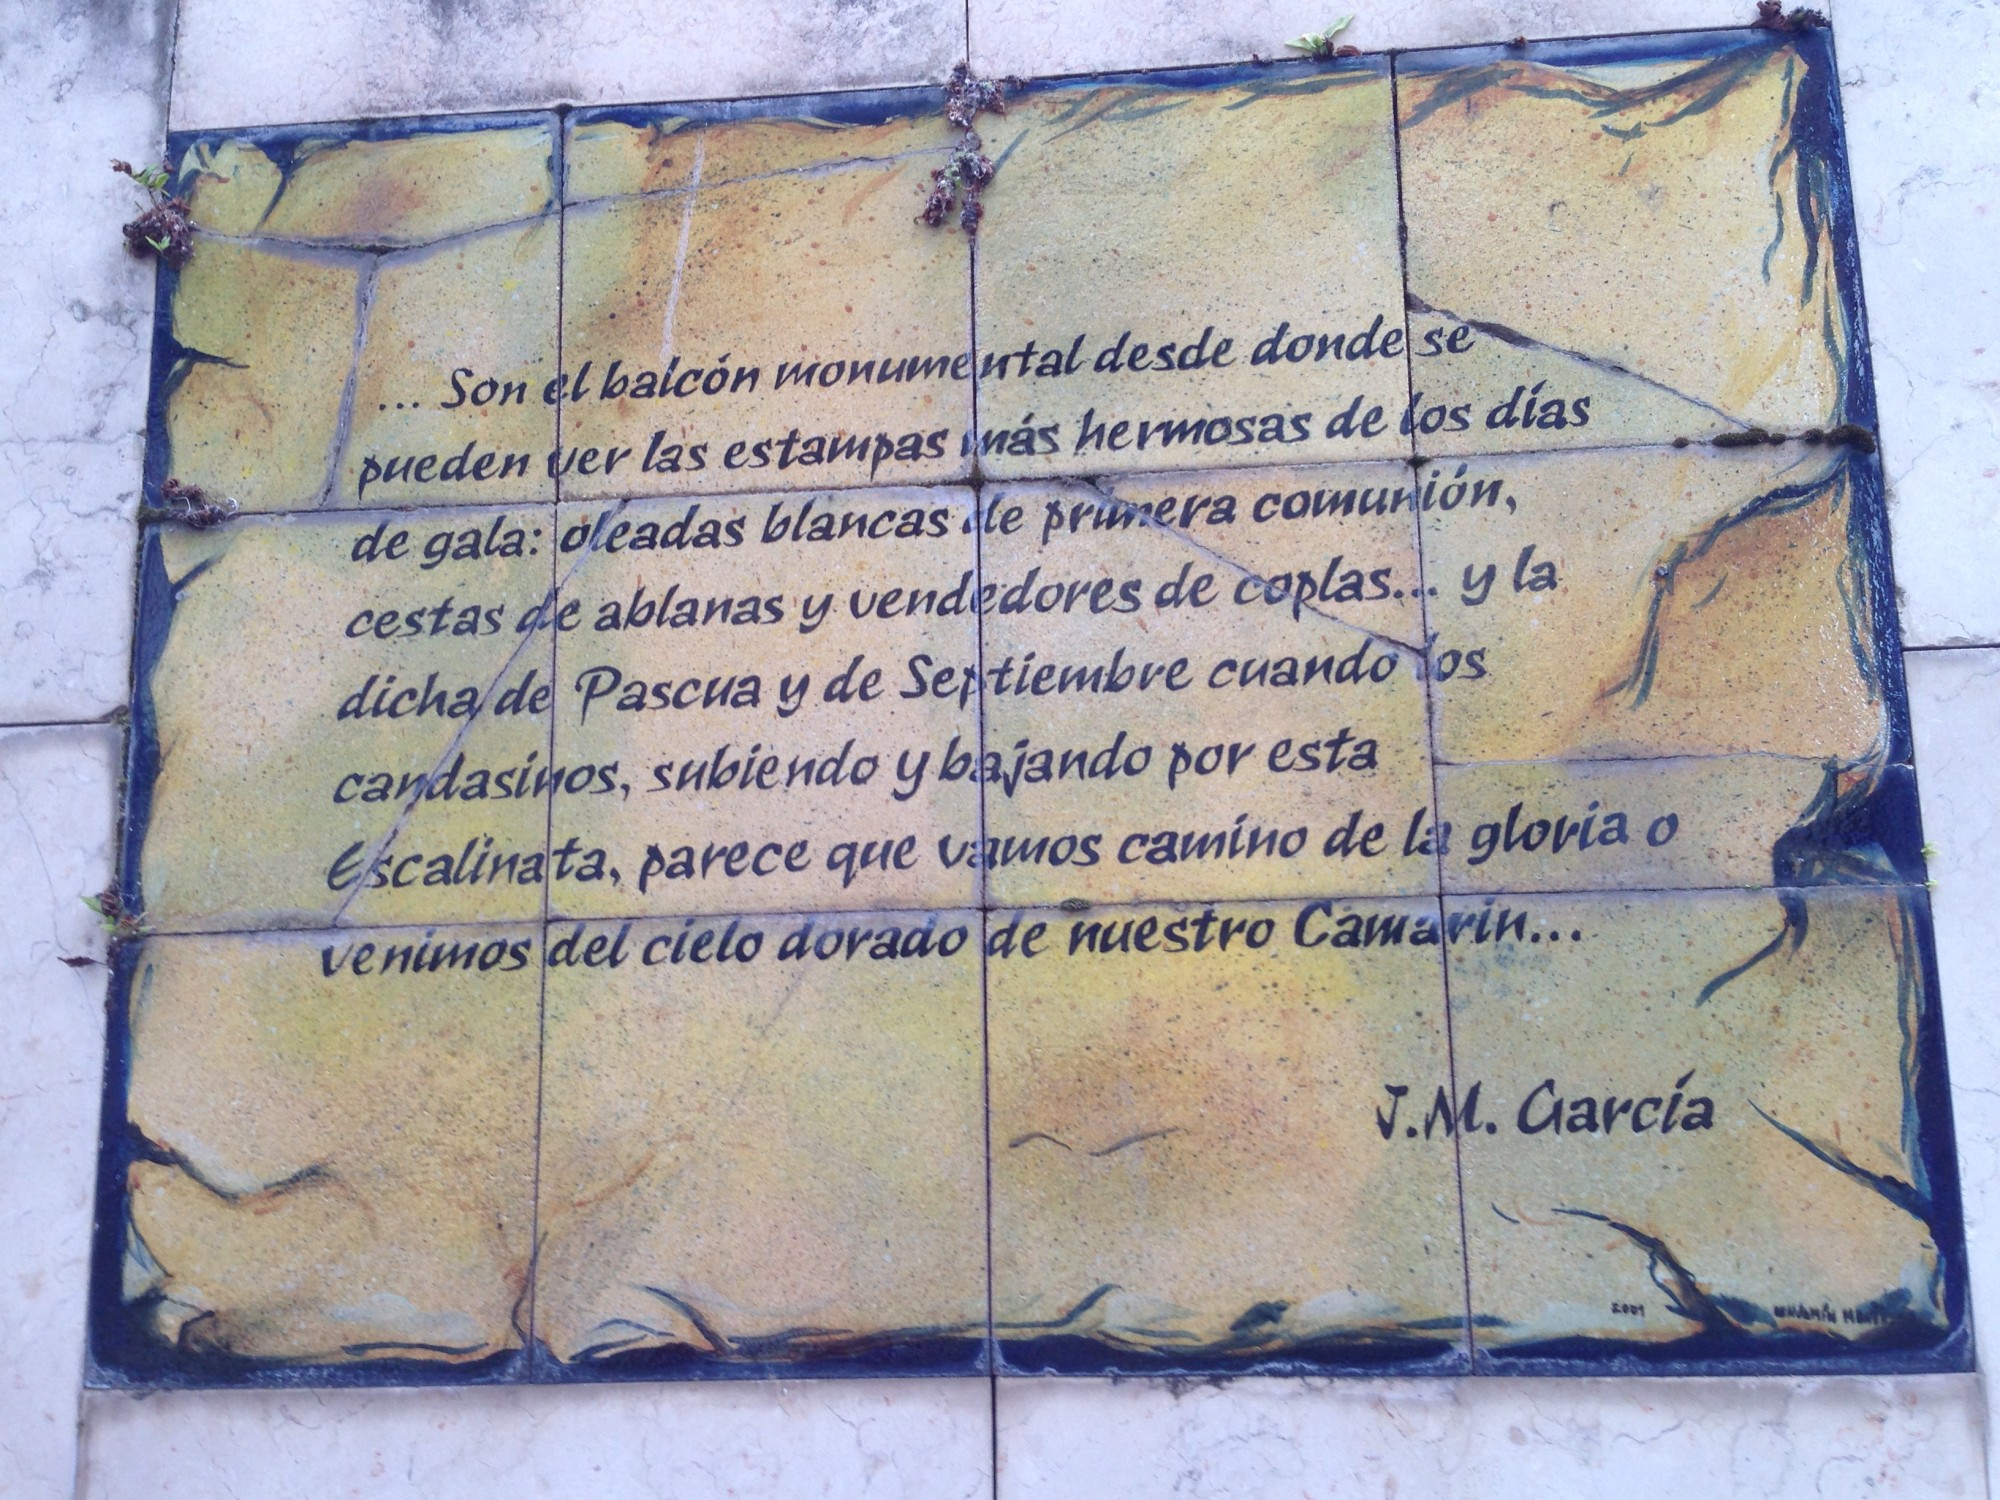 ... Son el balcón monumental desde donde se
pueden ver las estampas más hermosas de los días
de gala: oleadas blancas de primera comunión,
cestas de ablanas y vendedores de coplas... y la
dicha de Pascua y de Septiembre cuando los
candasinos, subiendo y bajando por esta
Escalinata, parece que vamos camino de la gloria o
venimos del cielo dorado de nuestro Camarín...
J.M. García
2001